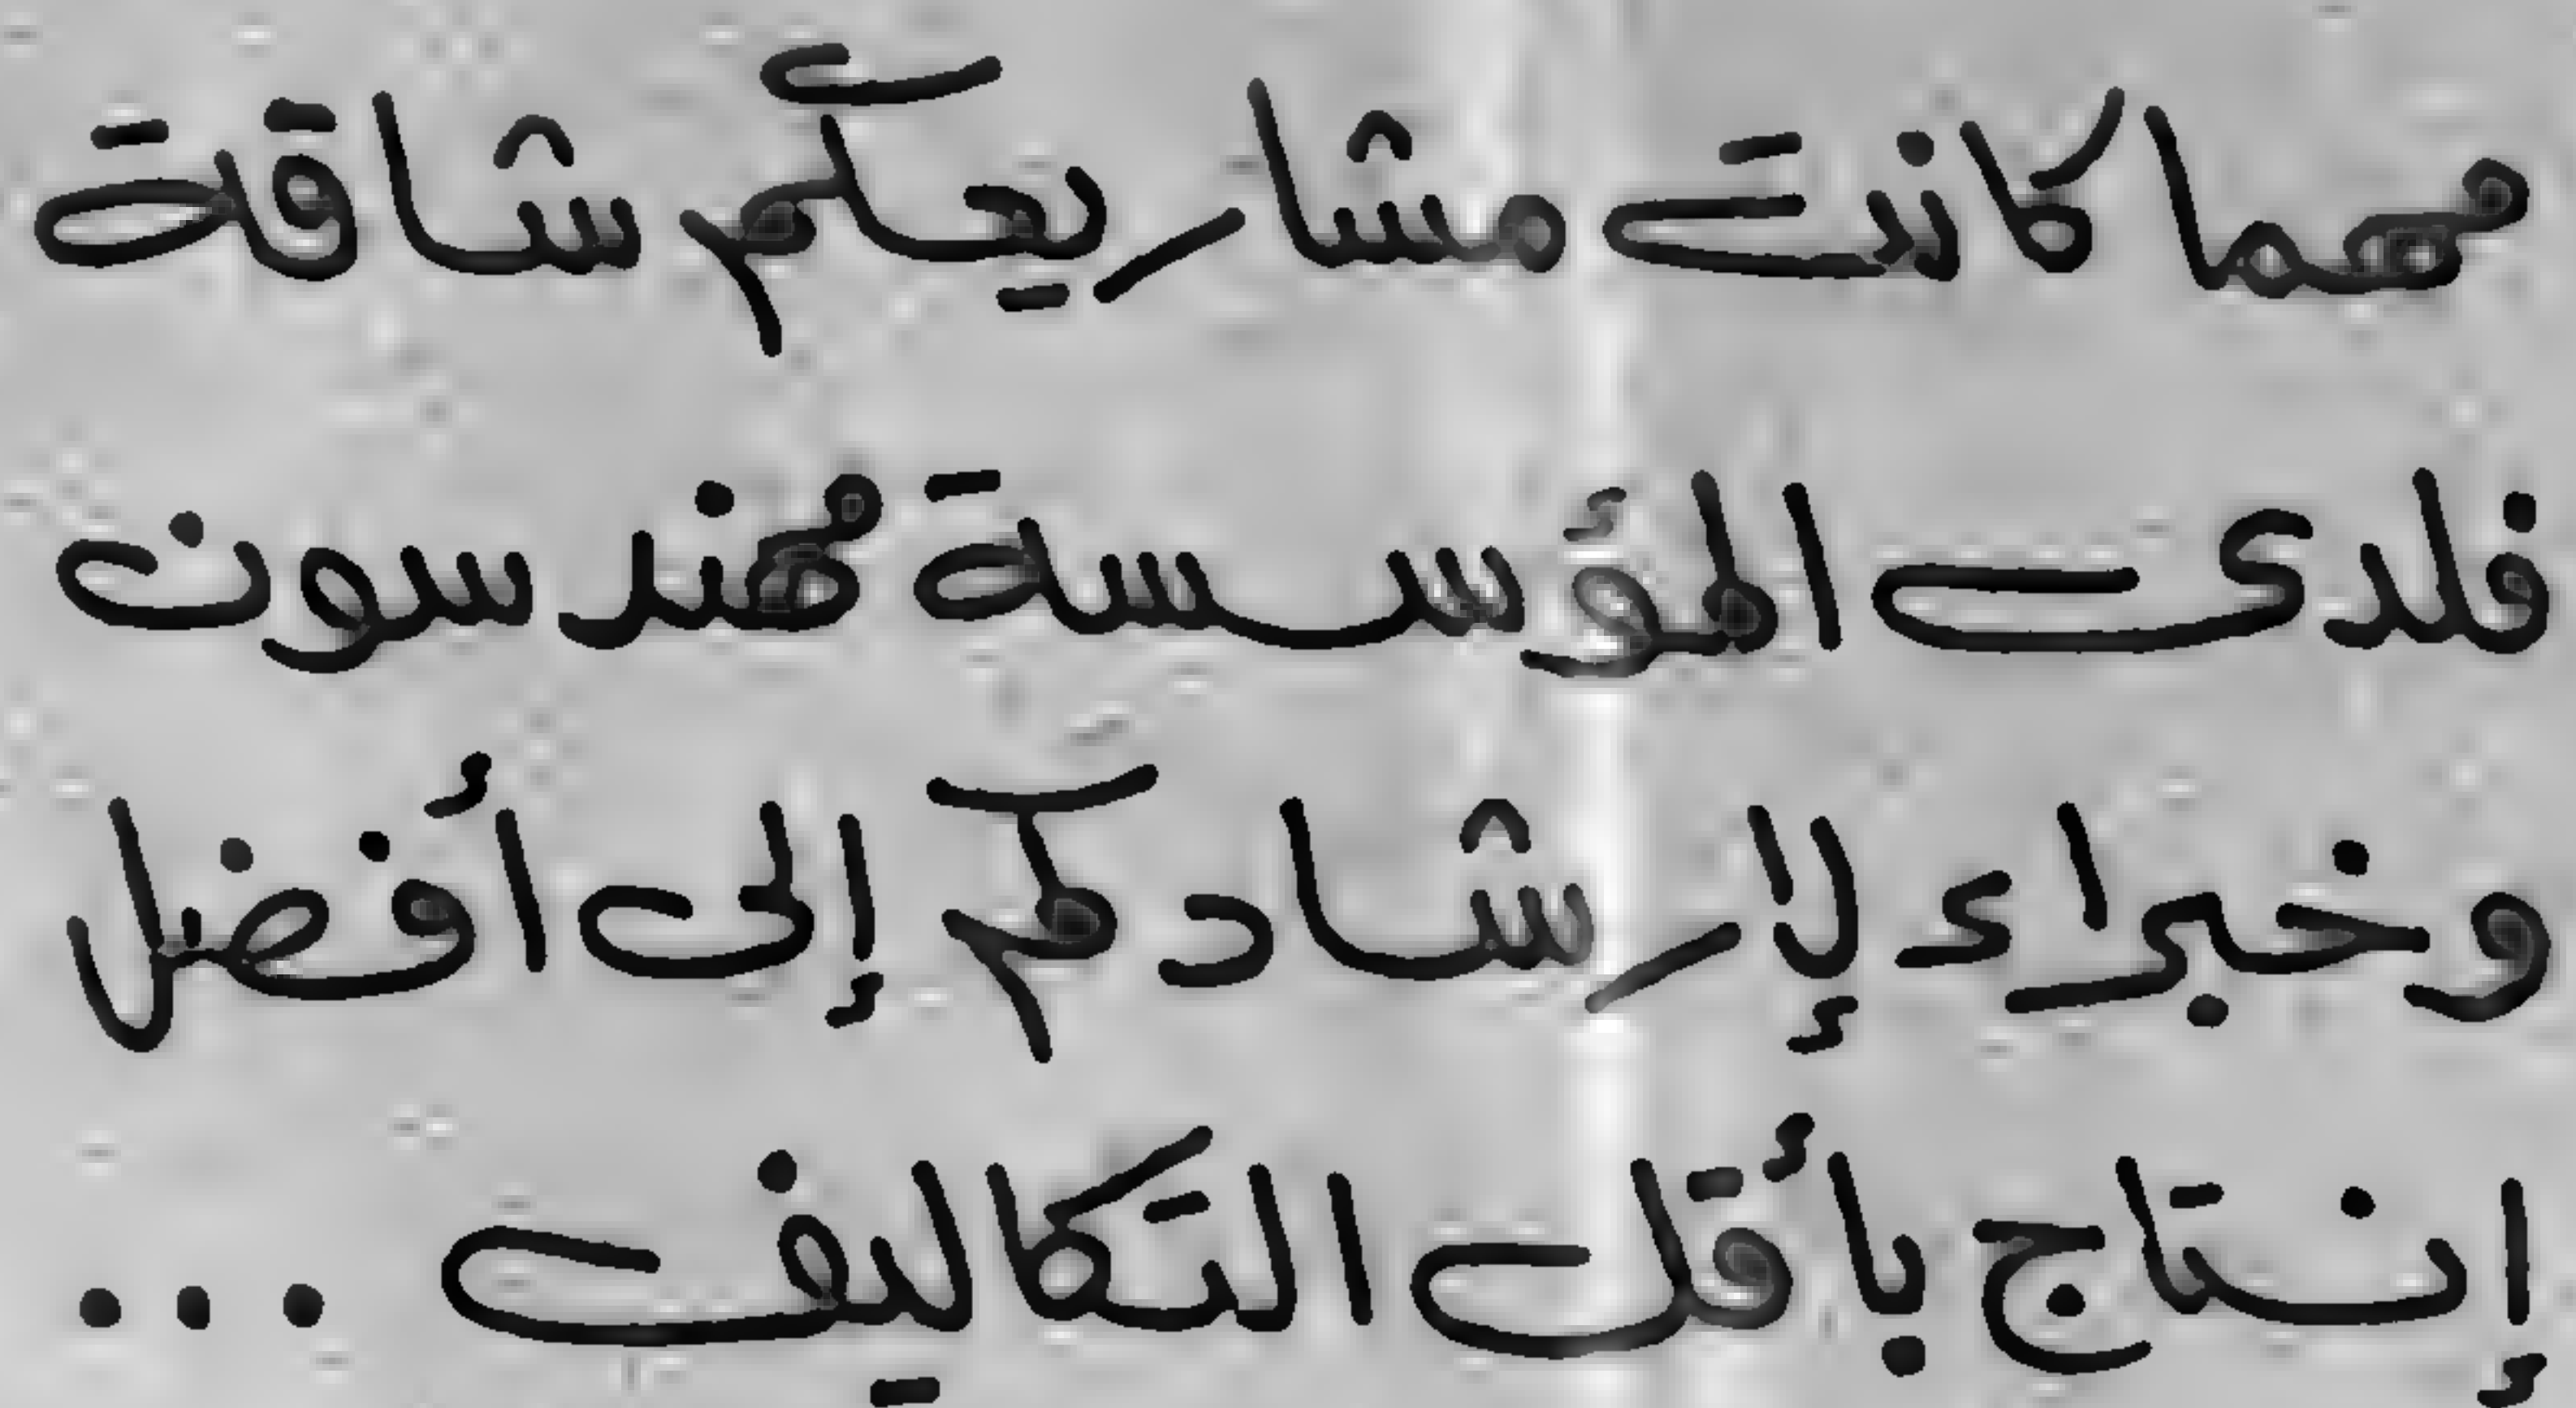 مهما كانت مشاريعكم شاقة
فلدى المؤسسة مهندسون
وخبراء لإرشادكم إلى أفضل
إنتاج بأقل التكاليف ...